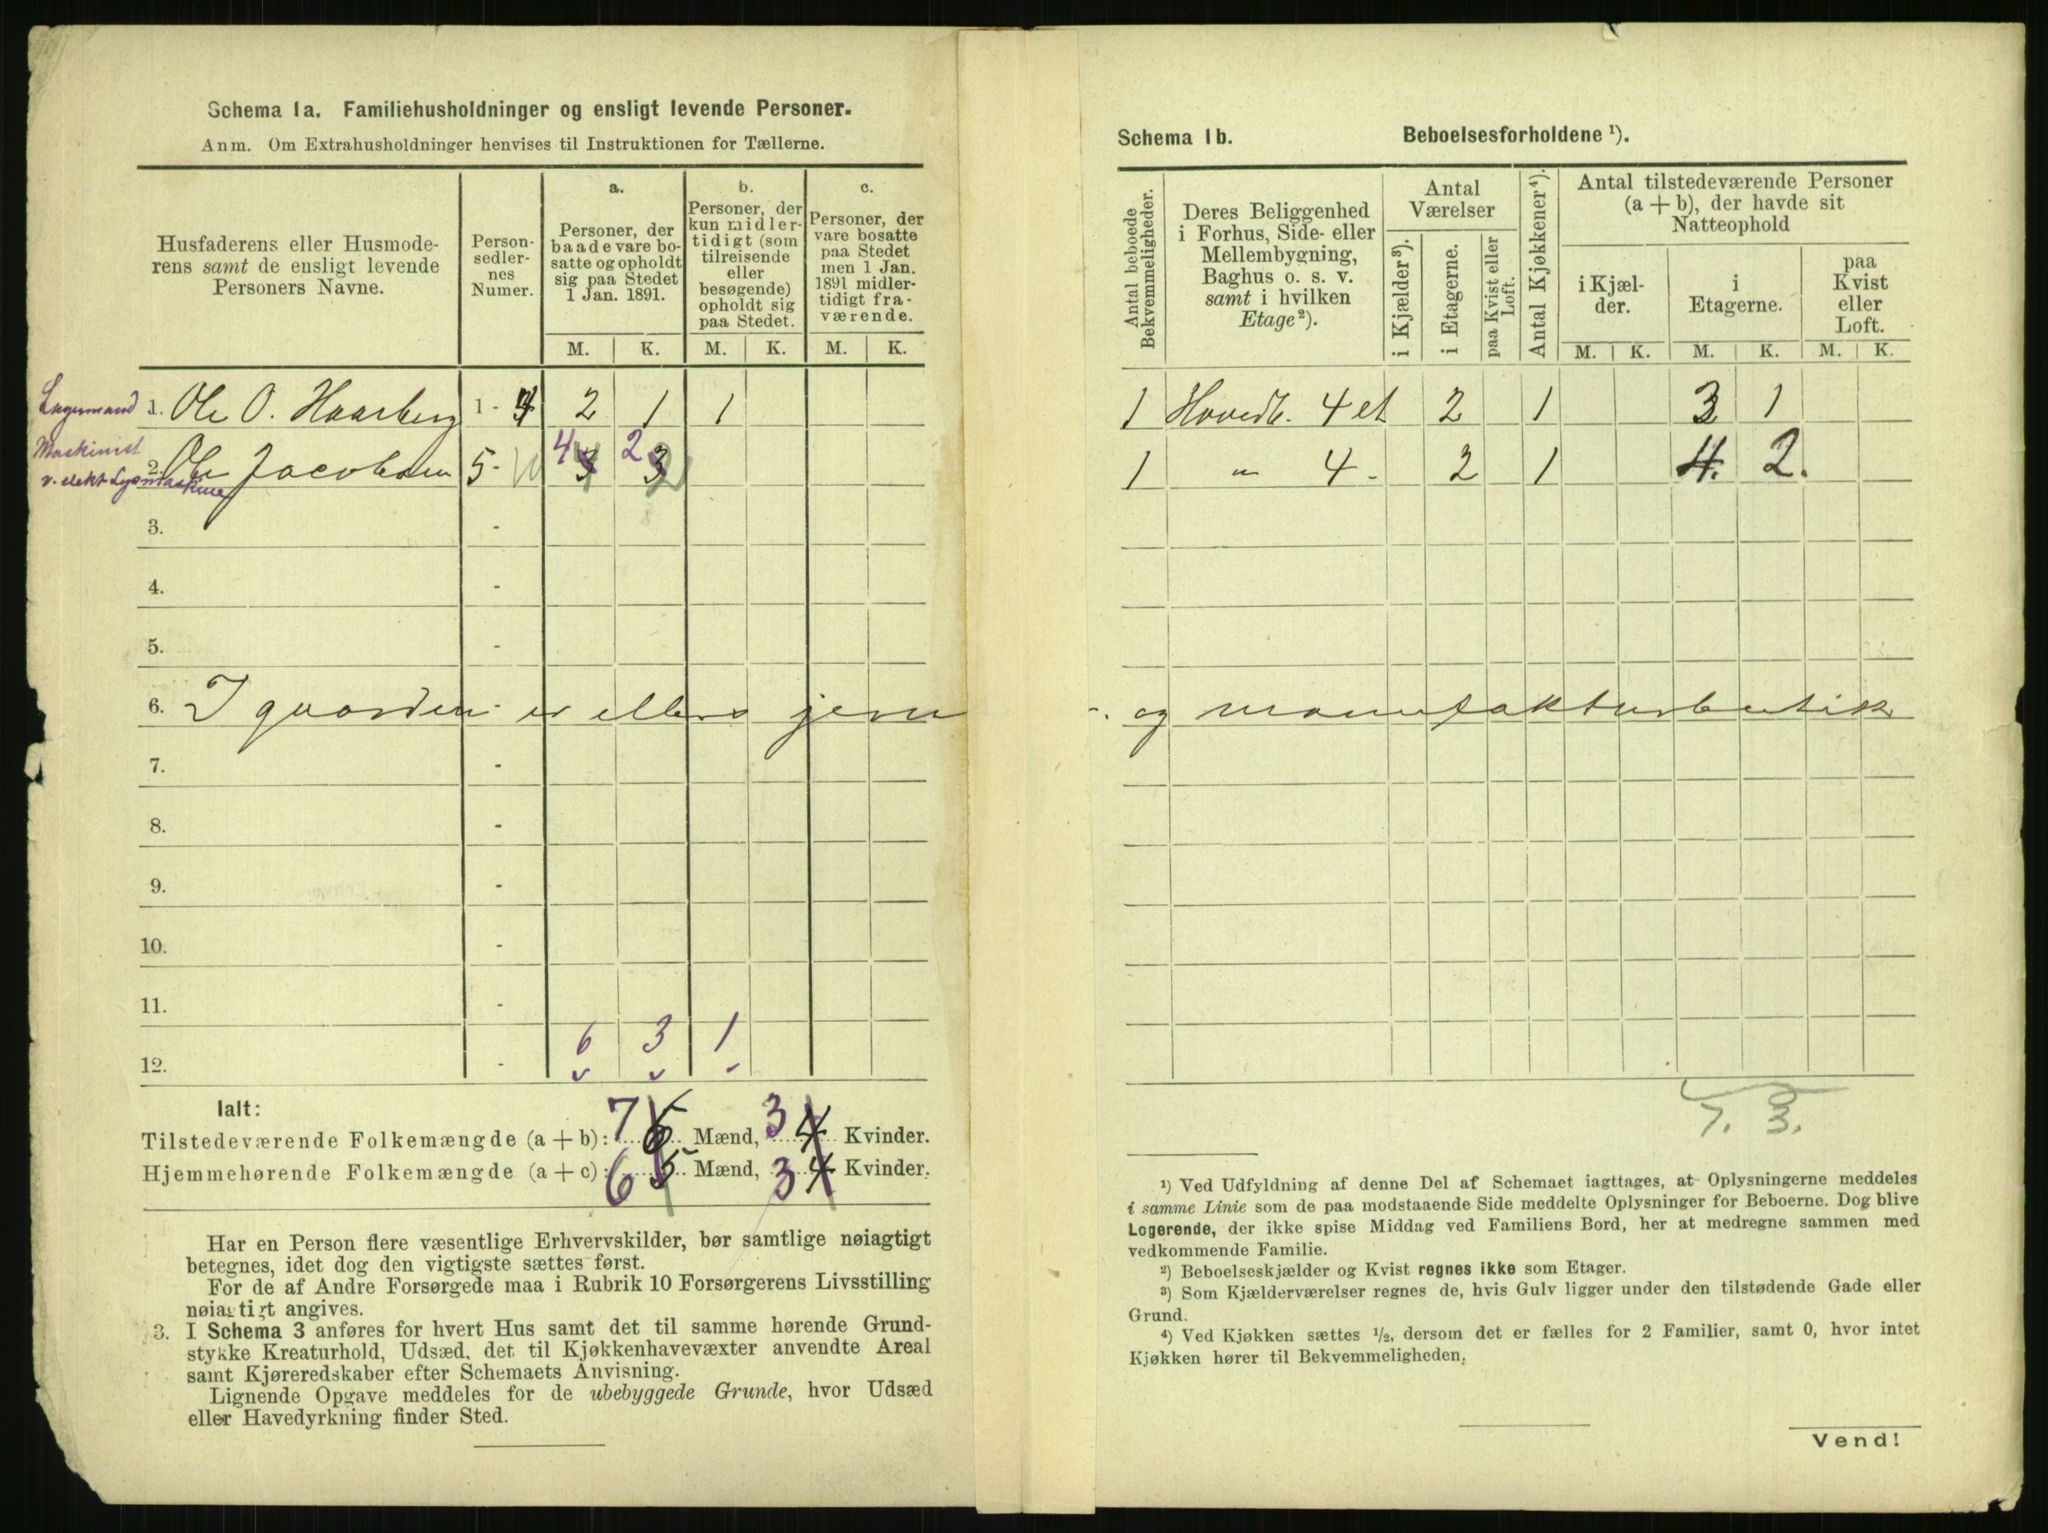 Schema 1a. Familiehusholdninger og ensligt levende Personer.
Anm. Om Extrahusholdninger henvises til Instruktionen for Tællerne.
Husfaderens eller Husmode-
rens samt de ensligt levende
Personers Navne.
Person-
sedler-
nes
Numer.
a.
Personer, der
baade vare bo-
satte og opholdt
sig paa Stedet
1 Jan. 1891.
b.
Personer, der
kun midler-
tidigt (som
tilreisende
eller
besøgende)
opholdt sig
paa Stedet.
c.
Personer, der
vare bosatte
paa Stedet
men 1 Jan.
1891 midler-
tidigt fra-
værende.
M. K. M. K. M. K.
Lagermand 1. Ole O. Haarberg 1 - 4 2 1 1
Maskinist
2. Ole Jacobsen 5 - 10 4 2
v. elekt Lysmaskine
3. -
4. -
5. -
6. I gaarden er ellers jern
7. -
8. -
9. -
10. -
11. -
6 3 1
12. -
Ialt:
Tilstedeværende Folkemængde (a + b): 7 Mænd, 3 Kvinder.
Hjemmehørende Folkemængde (a + c): 6 Mænd, 3 Kvinder.
Har en Person flere væsentlige Erhvervskilder, bør samtlige nøiagtigt
betegnes, idet dog den vigtigste sættes først.
For de af Andre Forsørgede maa i Rubrik 10 Forsørgerens Livsstilling
nøiagtigt angives.
3. I Schema 3 anføres for hvert Hus samt det til samme hørende Grund-
stykke Kreaturhold, Udsæd, det til Kjøkkenhavevæxter anvendte Areal
samt Kjøreredskaber efter Schemaets Anvisning.
Lignende Opgave meddeles for de ubebyggede Grunde, hvor Udsæd
eller Havedyrkning finder Sted.
Schema 1b. Beboelsesforholdene ¹).
Antal beboede
Bekvemmeligheder.
Deres Beliggenhed
i Forhus, Side- eller
Mellembygning,
Baghus o. s. v.
samt i hvilken
Etage ²).
Antal
Værelser
i Kjælder ³).
i Etagerne.
paa Kvist eller
Loft.
Antal Kjøkkener ⁴).
Antal tilstedeværende Personer
(a + b), der havde sit
Natteophold
i Kjæl-
der.
i
Etagerne.
paa
Kvist
eller
Loft.
M. K. M. K. M. K.
1 Hovedb. 4 et 2 1 3 1
1 " 4 - 2 1 4. 2.
og manufakturbutik
7. 3.
¹) Ved Udfyldning af denne Del af Schemaet iagttages, at Oplysningerne meddeles
i samme Linie som de paa modstaaende Side meddelte Oplysninger for Beboerne. Dog blive
Logerende, der ikke spise Middag ved Familiens Bord, her at medregne sammen med
vedkommende Familie.
²) Beboelseskjælder og Kvist regnes ikke som Etager.
³) Som Kjælderværelser regnes de, hvis Gulv ligger under den tilstødende Gade eller
Grund.
⁴) Ved Kjøkken sættes ½, dersom det er fælles for 2 Familier, samt 0, hvor intet
Kjøkken hører til Bekvemmeligheden.
Vend!